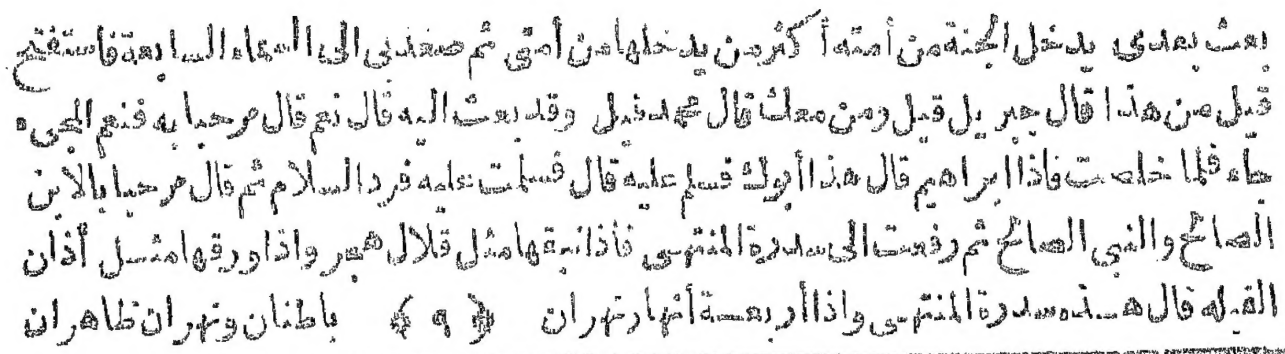 بعث بعدى يدخل الجنة من أمته أكثر من يدخلها من أمتى ثم صعد بى الى السماء السابعة فاستفتح
قيل من هذا قال جبريل قيل ومن معك قال محمد قيل وقد بعث اليه قال نعم قال مرحبا به فنعم المجىء
جاء فلما خلصت فاذا ابراهيم قال هذا أبوك فسلم عليه قال فسلمت عليه فرد السلام ثم قال مرحبا بالابن
الصالح والنبى الصالح ثم رفعت الى سدرة المنتهى فاذا نبقها مثل قلال هجر واذا ورقها مثل أذان
الفيله قال هذه سدرة المنتهى واذا أربعة أنهار نهران ﴿ ٩ ﴾ باطنان ونهران ظاهران